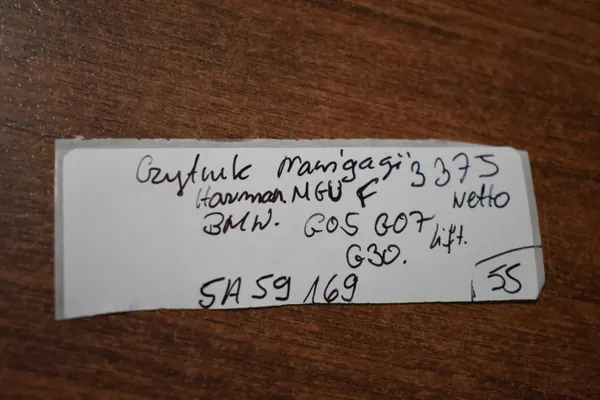 Czytnik nawigacji 3375
Harman MGU F netto
BMW. G05 G07 lift.
G30.
5A59169
55